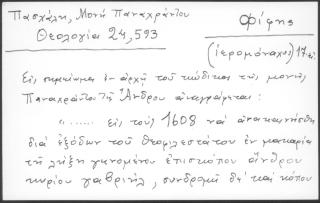 Πασχάλη, Μονή Παναχράντου
Φίφης
Θεολογία 24, 593
(ἱερομόναχος) 17 αἰ.
Εἰς σημείωμα ἐν ἀρχῇ τοῦ κώδικος τῆς μονῆς
Παναχράντου τῆς Ἄνδρου ἀναγράφεται:
" ...... εἰς τούς 1608 νά ἀνακαινήσθη
διά ἐξόδων τοῦ θεοφιλεστάτου ἐν μακαρία
τῇ λήξῃ γενομένου ἐπισκόπου ἄνδρου
κυρίου γαβριήλ, συνδρομῇ δέ καί κόπου